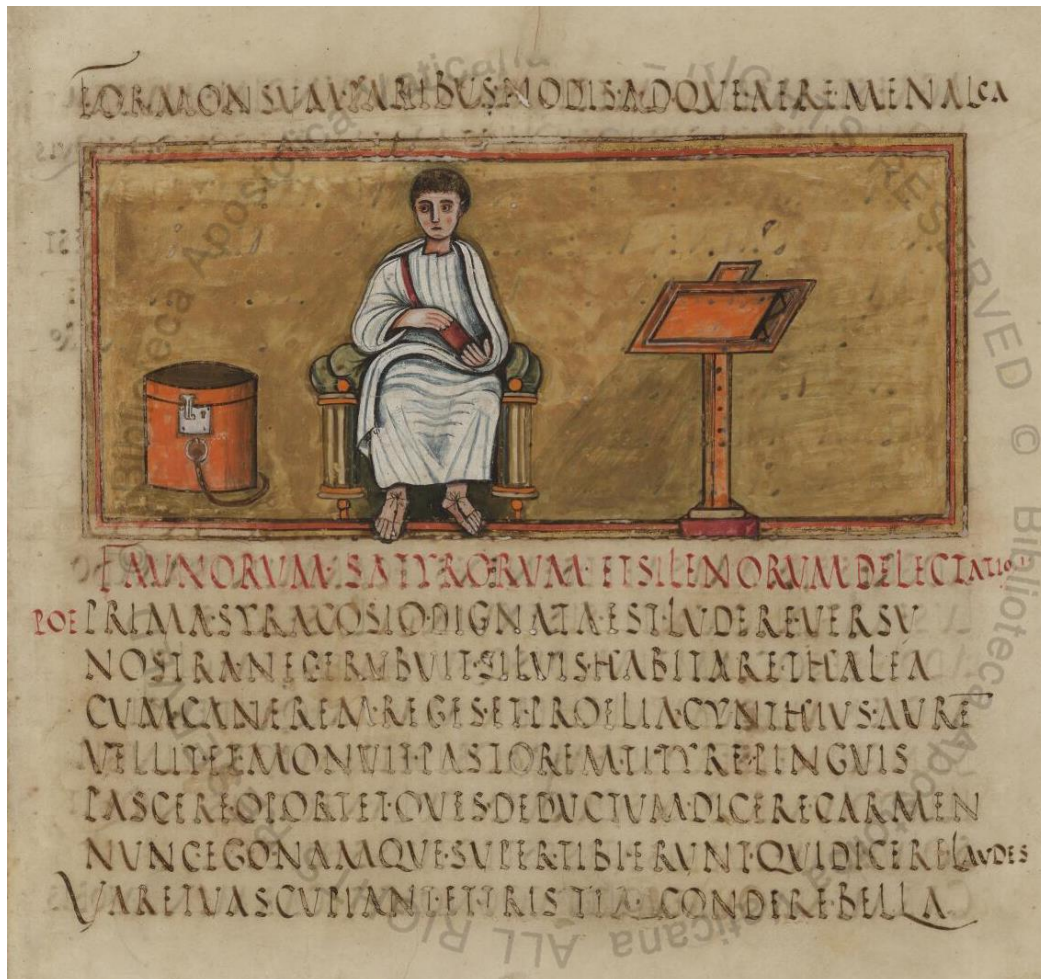 FORMONSUM·PARIBUS·NODIS·ADQUE·AERE·MENALCA
FAUNORUM·SATYRORUM·ET SILENORUM DELECTATIO
POE PRIMA·SYRACOSIO·DIGNATA·EST·LUDERE·VERSU
NOSTRA·NEC·ERUBUIT·SILVIS·HABITARE·THALEA
CUM·CANEREM·REGES·ET·PROELIA·CYNTHIUS·AURE
VELLIT·ET·MONUIT·PASTOREM·TITYRE·PINGUIS
PASCERE·OPORTET·OVES·DEDUCTUM·DICERE·CARMEN
NUNC·EGO·NAMQUE·SUPER·TIBI·ERUNT·QUI·DICERE·LAUDES
VARE·TUAS·CUPIANT·ET·TRISTIA·CONDERE·BELLA
© Biblioteca Apostolica Vaticana ALL RIGHTS RESERVED